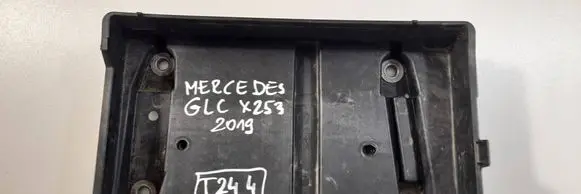 MERCEDES
GLC X253
2019
T244